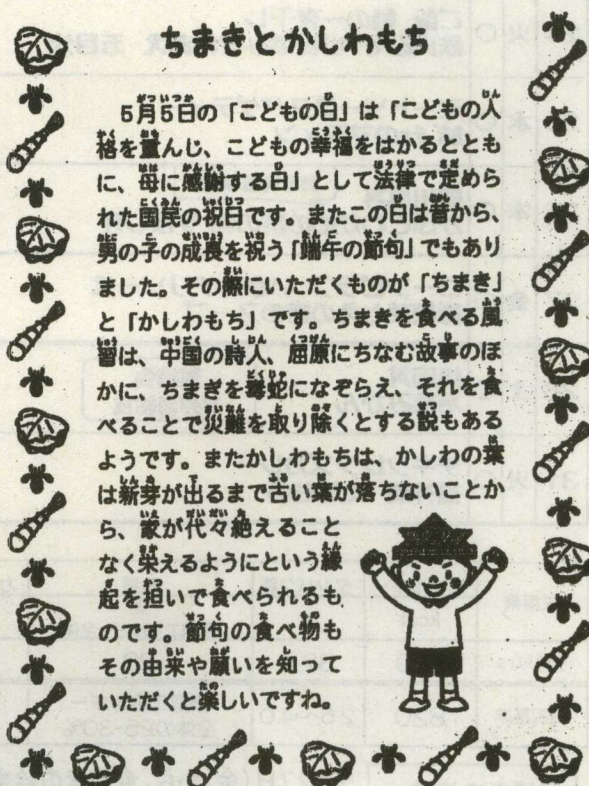 ちまきとかしわもち
5月5日の「こどもの日」は「こどもの人
格を重んじ、こどもの幸福をはかるととも
に、母に感謝する日」として法律で定めら
れた国民の祝日です。またこの日は昔から、
男の子の成長を祝う「端午の節句」でもあり
ました。その際にいただくものが「ちまき」
と「かしわもち」です。ちまきを食べる風
習は、中国の詩人、屈原にちなむ故事のほ
かに、ちまきを毒蛇になぞらえ、それを食
べることで災難を取り除くとする説もある
ようです。またかしわもちは、かしわの葉
は新芽が出るまで古い葉が落ちないことか
ら、家が代々絶えること
なく栄えるようにという縁
起を担いで食べられるも
のです。節句の食べ物も
その由来や願いを知って
いただくと楽しいですね。